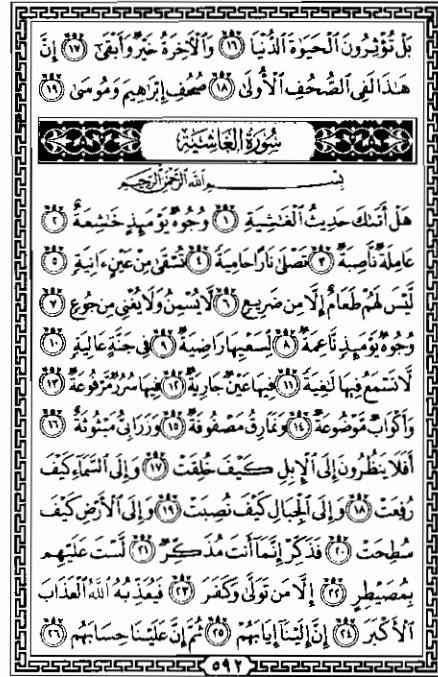 بَلْ تُؤْثِرُونَ ٱلْحَيَوٰةَ ٱلدُّنْيَا ١٦ وَٱلْءَاخِرَةُ خَيْرٌ وَأَبْقَىٰٓ ١٧ إِنَّ
هَٰذَا لَفِى ٱلصُّحُفِ ٱلْأُولَىٰ ١٨ صُحُفِ إِبْرَٰهِيمَ وَمُوسَىٰ ١٩
سُورَةُ الغَاشِيَةِ
بِسْمِ ٱللَّهِ ٱلرَّحْمَٰنِ ٱلرَّحِيمِ
هَلْ أَتَىٰكَ حَدِيثُ ٱلْغَٰشِيَةِ ١ وُجُوهٌ يَوْمَئِذٍ خَٰشِعَةٌ ٢
عَامِلَةٌ نَّاصِبَةٌ ٣ تَصْلَىٰ نَارًا حَامِيَةً ٤ تُسْقَىٰ مِنْ عَيْنٍ ءَانِيَةٍ ٥
لَّيْسَ لَهُمْ طَعَامٌ إِلَّا مِن ضَرِيعٍ ٦ لَّا يُسْمِنُ وَلَا يُغْنِى مِن جُوعٍ ٧
وُجُوهٌ يَوْمَئِذٍ نَّاعِمَةٌ ٨ لِّسَعْيِهَا رَاضِيَةٌ ٩ فِى جَنَّةٍ عَالِيَةٍ ١٠
لَّا تَسْمَعُ فِيهَا لَٰغِيَةً ١١ فِيهَا عَيْنٌ جَارِيَةٌ ١٢ فِيهَا سُرُرٌ مَّرْفُوعَةٌ ١٣
وَأَكْوَابٌ مَّوْضُوعَةٌ ١٤ وَنَمَارِقُ مَصْفُوفَةٌ ١٥ وَزَرَابِىُّ مَبْثُوثَةٌ ١٦
أَفَلَا يَنظُرُونَ إِلَى ٱلْإِبِلِ كَيْفَ خُلِقَتْ ١٧ وَإِلَى ٱلسَّمَآءِ كَيْفَ
رُفِعَتْ ١٨ وَإِلَى ٱلْجِبَالِ كَيْفَ نُصِبَتْ ١٩ وَإِلَى ٱلْأَرْضِ كَيْفَ
سُطِحَتْ ٢٠ فَذَكِّرْ إِنَّمَآ أَنتَ مُذَكِّرٌ ٢١ لَّسْتَ عَلَيْهِم
بِمُصَيْطِرٍ ٢٢ إِلَّا مَن تَوَلَّىٰ وَكَفَرَ ٢٣ فَيُعَذِّبُهُ ٱللَّهُ ٱلْعَذَابَ
ٱلْأَكْبَرَ ٢٤ إِنَّ إِلَيْنَآ إِيَابَهُمْ ٢٥ ثُمَّ إِنَّ عَلَيْنَا حِسَابَهُم ٢٦
٥٩٢